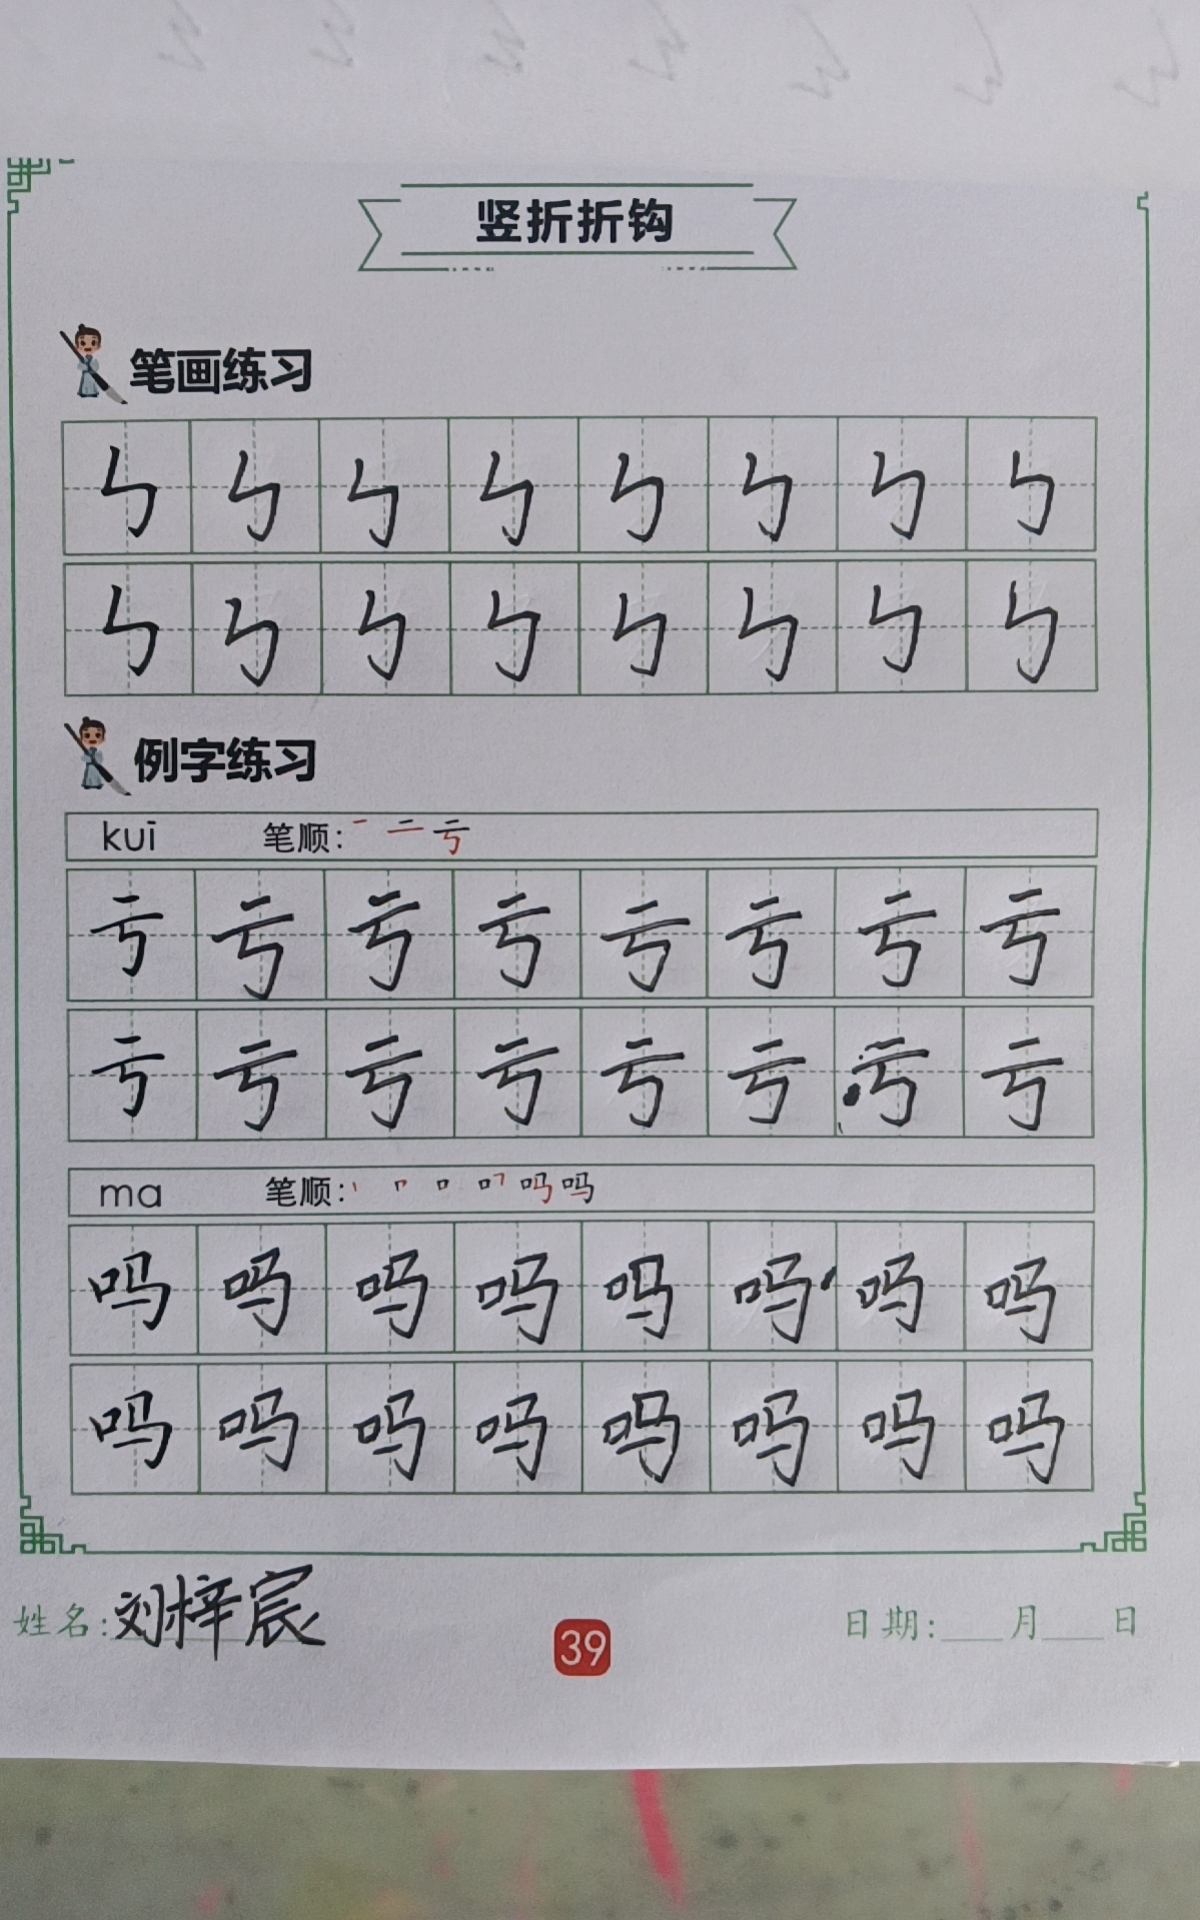 竖折折钩
笔画练习
ㄣ ㄣ ㄣ ㄣ ㄣ ㄣ ㄣ ㄣ
ㄣ ㄣ ㄣ ㄣ ㄣ ㄣ ㄣ ㄣ
例字练习
kuī 笔顺: 一 二 亏
亏 亏 亏 亏 亏 亏 亏 亏
亏 亏 亏 亏 亏 亏 亏 亏
ma 笔顺: 丨 𠃍 口 吗 吗
吗 吗 吗 吗 吗 吗 吗 吗
吗 吗 吗 吗 吗 吗 吗 吗
姓名: 刘梓宸 39 日期: 月 日